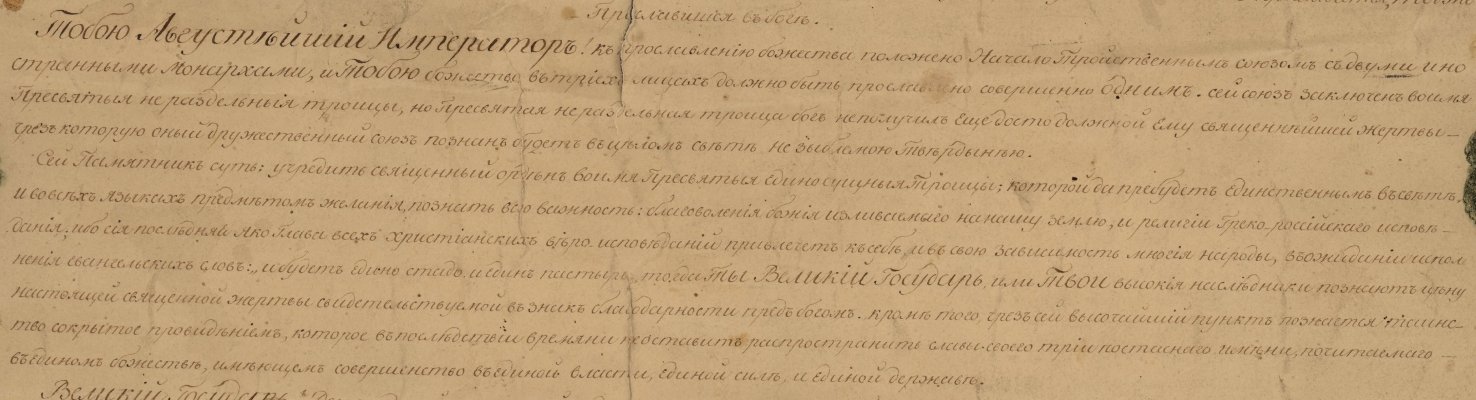 Прославишися въ боге.
Тобою Августѣйшій Императоръ! къ прославленію божества положено Начало Тройственнымъ союзомъ съ двумя ино
странными Монархами, и Тобою божество въ тріехъ лицахъ должно быть прославлено совершенно Однимъ. сей союзъ заключенъ во имя
Пресвятыя не раздельныя троицы, но Пресвятая не раздельная троица богъ неполучилъ Еще достодолжной Ему священнѣйшей Жертвы —
чрезъ которую оный дружественный союзъ познанъ будетъ въ целомъ свѣтѣ не зыблемою Твѣрдынѣю.
Сей Памятникъ суть: учредить свѣщенный орденъ во имя Пресвятыя Единосущныя Троицы; которой да пребудетъ Единственнымъ въ свѣтѣ,
и во всѣхъ языкахъ предмѣтомъ желанія, познать всю важность: благоволенія божія изливаемаго на нашу землю, и религіи Греко-россійскаго исповѣ —
данія. ибо сія послѣдняя яко Глава всехъ христіанскихъ вѣро исповѣданій привлечетъ къ себѣ, и въ свою зависимость многія народы, въ ожиданіи испол
ненія евангельскихъ словъ: „и будетъ едино стадо и единъ пастырь, тогда Ты Великій Государь, или Твои высокія наслѣдники познаютъ цѣну
настоящей священной жертвы свидетельствуемой въ знакъ благодарности предъ богомъ. кромѣ того, чрезъ сей высочайшій пунктъ познается таинс—
тво сокрытое провидѣніемъ, которое въ послѣдствіи времяни неоставитъ распространить славы своего тріипостаснаго имѣни, почитаемаго —
въ единомъ божествѣ, имѣющемъ совершенство въ единой власти, единой силѣ, и единой державѣ.
Великій Государь!